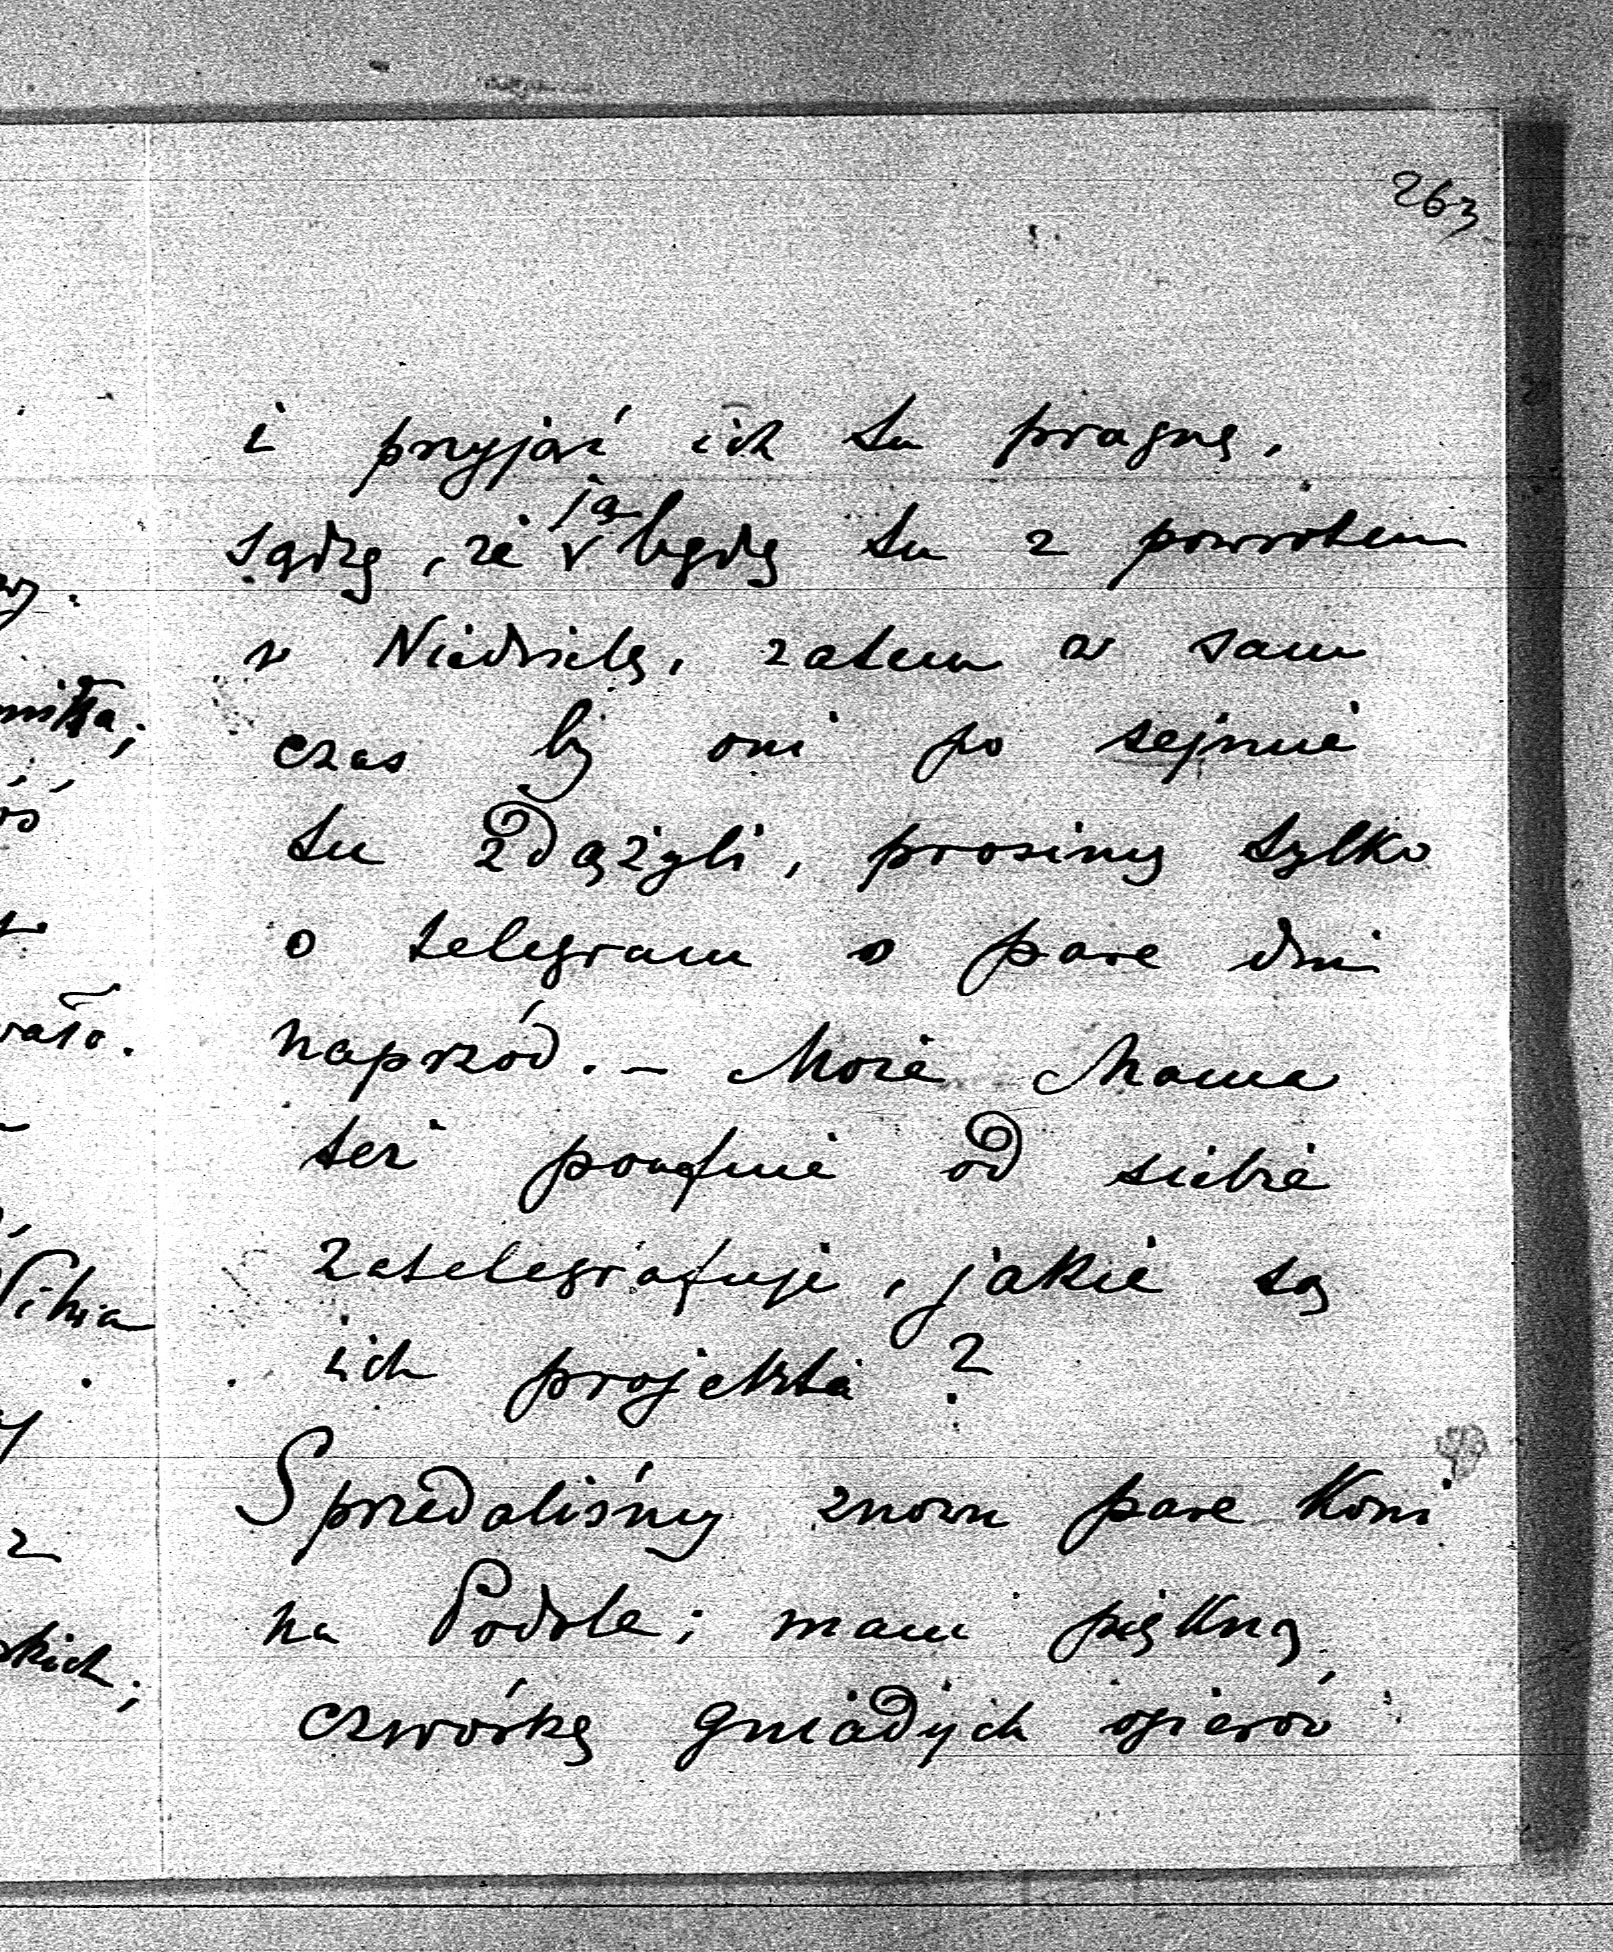 263
i przyjąć ich tu pragnę,
sądzę, że ja będę tu z powrotem
w Niedzielę, zatem w sam
czas by oni po sejmie
tu zdążyli, prosimy tylko
o telegram o parę dni
naprzód. - Może Mama
też poufnie od siebie
zatelegrafuje, jakie są
ich projekta?
Sprzedaliśmy znowu parę koni
na Podole; mam piękną
czwórkę gniadych ogierów